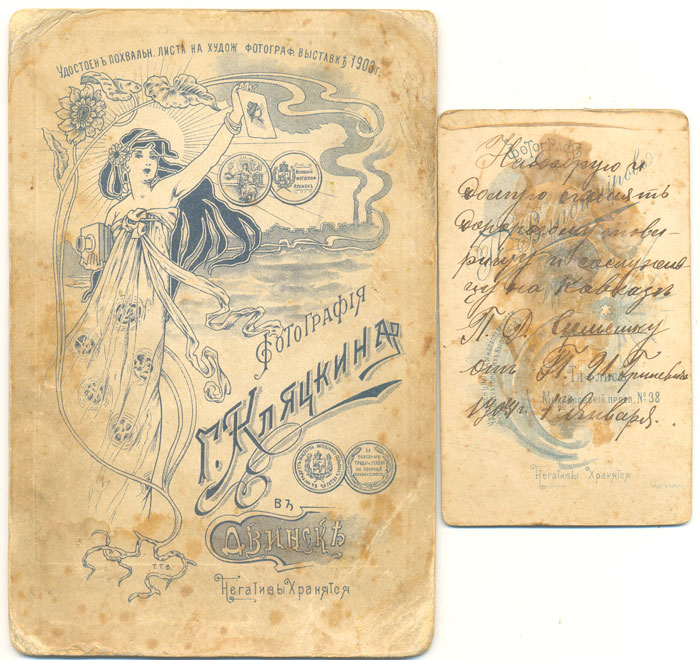 Удостоенъ похвальн. листа на худож фотограф. выставкѣ 1903 г.
Фотографія
Г. Кляцкина
въ
Двинскѣ
Негативы Хранятся
Т.Т.В.
Фотографъ
На добрую и
долгую память
дорогому това-
рищу и сослужив-
цу на Кавказѣ
П. Д. Сумешку
отъ П. И.
Тифлисъ
просп. № 38
1904 г. 1 Января.
Негативы Хранятся